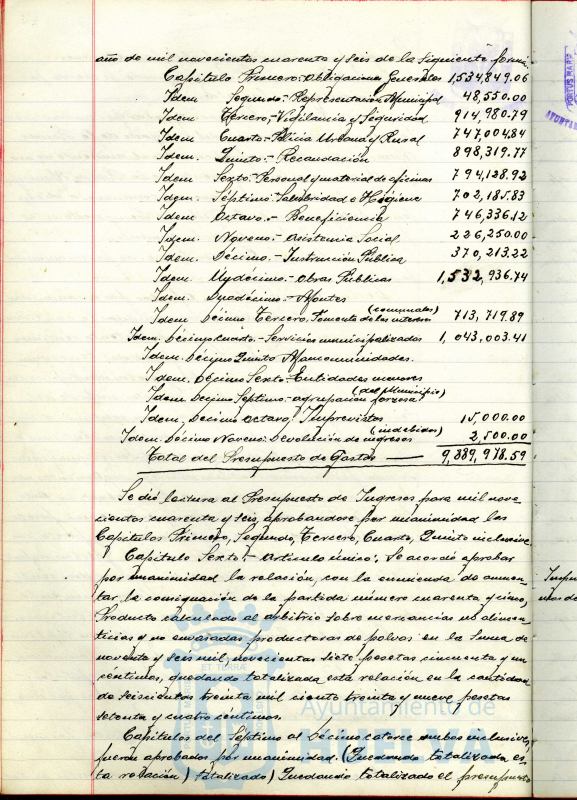 año de mil novecientos cuarenta y seis de la siguiente forma
Capitulo Primero.- Obligaciones Generales 1,534,849.06
Idem. Segundo.- Representación Municipal 48,550.00
Idem Tercero.- Vigilancia y Seguridad 914,980.79
Idem Cuarto.- Policia Urbana y Rural 747,004,84
Idem. Quinto.- Recaudación 898,319.77
Idem Sexto.- Personal y material de oficinas 794,128.92
Idem. Séptimo.- Salubridad e Higiene 702,185.83
Idem Octavo.- Beneficiencia 746,336.12
Idem. Noveno.- Asistencia Social 226,250.00
Idem. Décimo.- Instrucción Pública 370,213.22
Idem. Undécimo.- Obras Públicas 1,532,936.74
Idem. Duodécimo.- Montes
Idem Décimo Tercero. Fomento de los intereses (comunales) 713,719.89
Idem. Décimo cuarto.- Servicios municipalizados 1,043,003.41
Idem. Décimo Quinto Mancomunidades.
Idem. Décimo Sexto.- Entidades menores
Idem Décimo Septimo.- agrupación forzosa (del Municipio)
Idem, Décimo octavo.- Imprevistos 15,000.00
Idem. Décimo Noveno: Devolución de ingresos (indebidos) 2,500.00
Total del Presupuesto de Gastos — 9,889,978.59
Se dió lectura al Presupuesto de Ingresos para mil nove
cientos cuarenta y seis, aprobandose por unanimidad los
Capítulos Primero, Segundo, Tercero, Cuarto, Quinto inclusive.
Capitulo Sexto.- Articulo único: Se acordó aprobar
por unanimidad la relación, con la enmienda de aumen-
tar la consignación de la partida número cuarenta y cinco,
Producto calculado al arbitrio sobre mercancias no alimen
ticias y no envasadas productoras de polvos en la suma de
noventa y seis mil, novecientas siete pesetas cincuenta y un
céntimos, quedando totalizada esta relación en la cantidad
de seiscientas treinta mil ciento treinta y nueve pesetas
setenta y cuatro céntimos.
Capitulos del Séptimo al Décimo catorce ambos inclusives,
fueron aprobados por unanimidad. (Quedando totalizada es-
ta relación) totalizado) Quedando totalizado el presupuesto
Ayuntamiento de
HUELVA
ET TERRAE